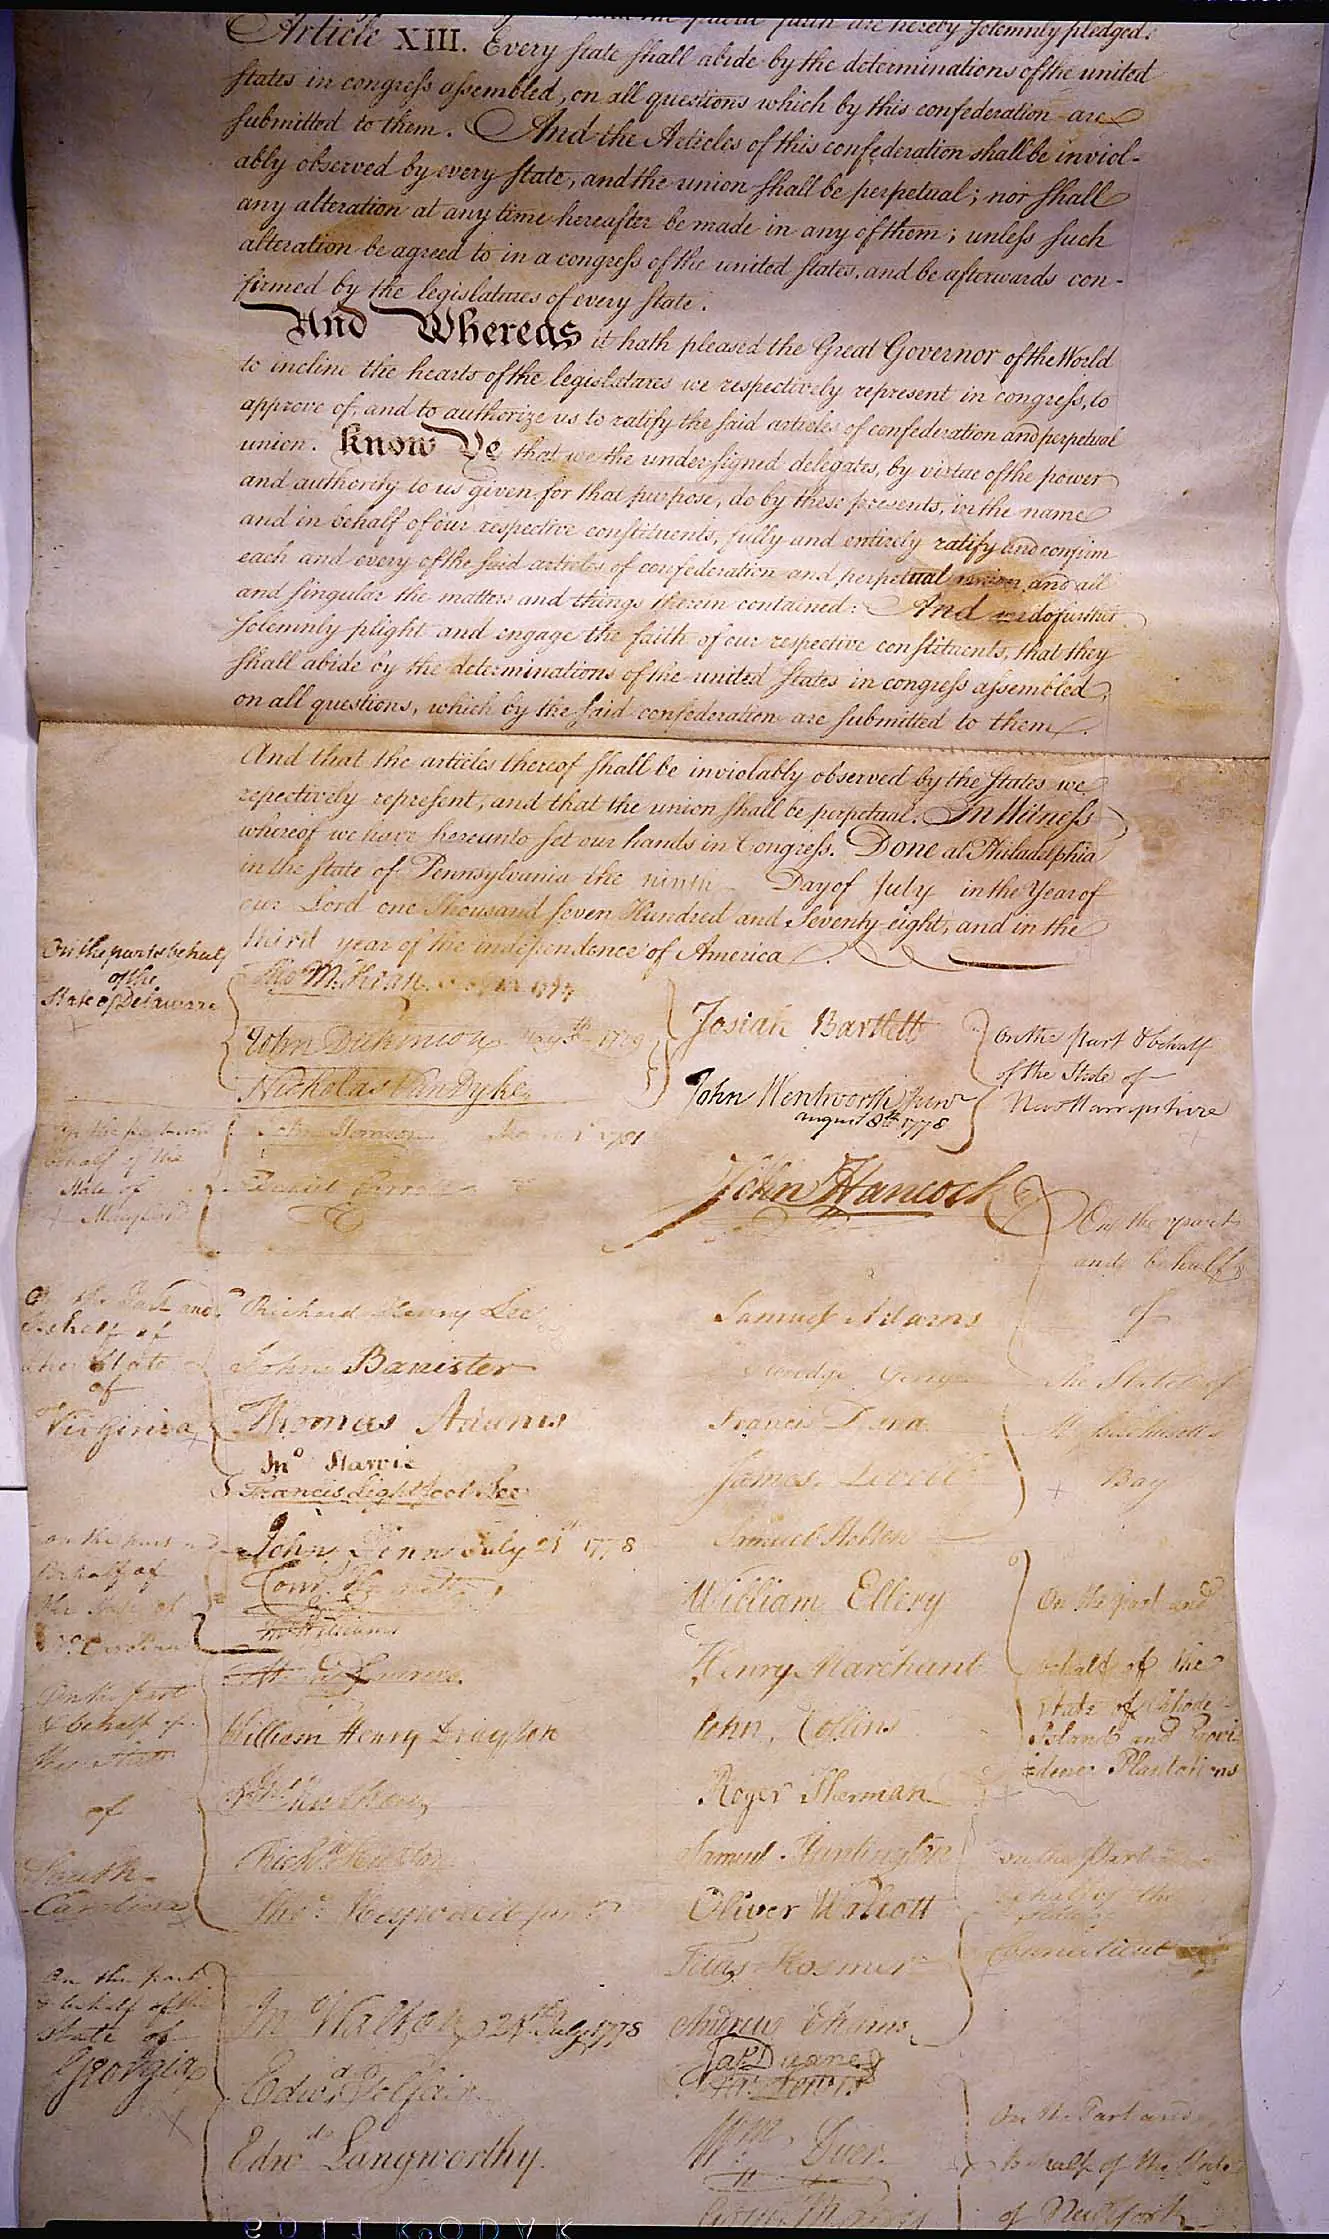 are hereby solemnly pledged.
Article XIII. Every state shall abide by the determinations of the united
states in congress assembled, on all questions which by this confederation are
submitted to them. And the Articles of this confederation shall be inviol-
ably observed by every state, and the union shall be perpetual; nor shall
any alteration at any time hereafter be made in any of them; unless such
alteration be agreed to in a congress of the united states, and be afterwards con-
firmed by the legislatures of every state.
And Whereas it hath pleased the Great Governor of the World
to incline the hearts of the legislatures we respectively represent in congress, to
approve of, and to authorize us to ratify the said articles of confederation and perpetual
union. Know Ye that we the undersigned delegates, by virtue of the power
and authority to us given for that purpose, do by these presents, in the name
and in behalf of our respective constituents, fully and entirely ratify and confirm
each and every of the said articles of confederation and perpetual union, and all
and singular the matters and things therein contained: And we do further
solemnly plight and engage the faith of our respective constituents, that they
shall abide by the determinations of the united states in congress assembled,
on all questions, which by the said confederation are submitted to them.
And that the articles thereof shall be inviolably observed by the states we
repectively represent, and that the union shall be perpetual. In Witness
whereof we have hereunto set our hands in Congress. Done at Philadelphia
in the state of Pennsylvania the ninth Day of July in the Year of
our Lord one Thousand seven Hundred and Seventy eight, and in the
third year of the independence of America
On the part & behalf
of the
State of Delaware
Tho M:Kean
John Dickinson May 5th 1779
Nicholas Van Dyke,
Josiah Bartlett
John Wentworth Junr
august 8th 1778
on the part & behalf
of the State of
New Hampshire
behalf of the
State of
Maryland
John Hanson March 1 1781
Daniel Carroll do
John Hancock
On the part
and behalf
of
the State of
Massachusetts
Bay
Samuel Adams
Elbridge Gerry
Francis Dana
James Lovell
Samuel Holten
On the Part and
Behalf of
the State
of
Virginia
Richard Henry Lee
John Banister
Thomas Adams
Jno Harvie
Francis Lightfoot Lee
on the part and
Behalf of
the State of
No Carolina
John Penn July 21st 1778
Corns Harnett
Jno Williams
William Ellery
Henry Marchant
John Collins
On the part and
behalf of the
State of Rhode-
Island and Provi-
dence Plantations
On the part
& behalf of
the State
of
South-
Carolina
Henry Laurens.
William Henry Drayton
Jno Mathews
Richd Hutson
Thos Heyward junr
Roger Sherman
Samuel Huntington
Oliver Wolcott
Titus Hosmer
Andrew Adams
on the Part
behalf of the
Connecticut
On the part
& behalf of the
State of
Georgia
Jno Walton 24th July 1778
Edwd Telfair
Edwd Langworthy.
Jas Duane
Fra: Lewis
Wm Duer.
Gouv Morris
On the Part and
behalf of the State
of New York
6011 KODAK